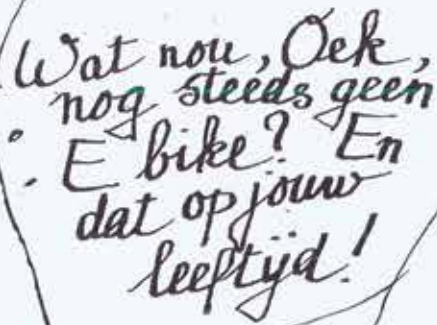 Wat nou, Oek,
nog steeds geen
E bike? En
dat op jouw
leeftijd!